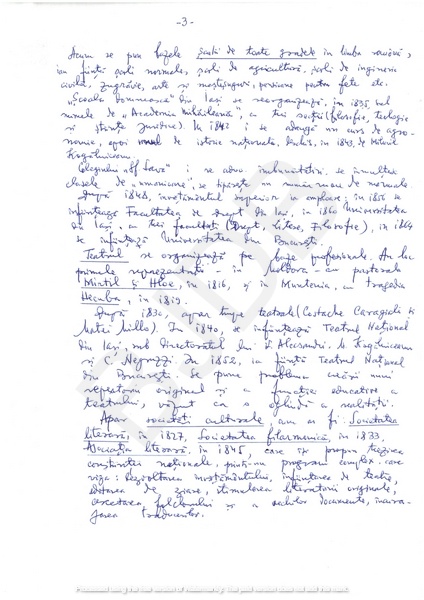 -3-
Acum se pun bazele școlii de toate gradele în limba română,
iau ființă școli normale, școli de agricultură, școli de inginerie
civilă, zugrăvie, arte și meșteșuguri, pensioane pentru fete etc.
„Școala Domnească” din Iași se reorganizează, în 1835, sub
numele de „Academia Mihăileană”, cu trei secții (filosofie, teologie
și științe juridice). În 1842 i se adaugă un curs de agro-
nomie, apoi de istorie națională, deschis, în 1843, de Mihail
Kogălniceanu.
Colegiului „Sf. Sava” i se aduc îmbunătățiri, se înmulțesc
clasele de „umanioare”, se tipărește un număr mare de manuale.
După 1848, învățământul superior ia amploare; în 1856 se
înființează Facultatea de Drept din Iași, în 1860 Universitatea
din Iași, cu trei facultăți (Drept, Litere, Filosofie), în 1864
se înființează Universitatea din București.
Teatrul se organizează pe baze profesionale. Au loc
primele reprezentații - în Moldova - cu pastorala
Mirtil și Hloe, în 1816, și în Muntenia, cu tragedia
Hecuba, în 1819.
După 1830, apar trupe teatrale (Costache Caragiali și
Matei Millo). În 1840, se înființează Teatrul Național
din Iași, sub directoratul lui V. Alecsandri, M. Kogălniceanu
și C. Negruzzi. În 1852, ia ființă Teatrul Național
din București. Se pune problema creării unui
repertoriu original și a funcției educative a
teatrului, văzut ca o oglindă a realității.
Apar societăți culturale cum ar fi: Societatea
literară, în 1827, Societatea filarmonică, în 1833,
Asociația literară, în 1845, care își propun trezirea
conștiinței naționale, printr-un program complex, care
viza: dezvoltarea învățământului, înființarea de teatre,
editarea de ziare, stimularea literaturii originale,
cercetarea folclorului și a vechilor documente, încura-
jarea traducerilor.